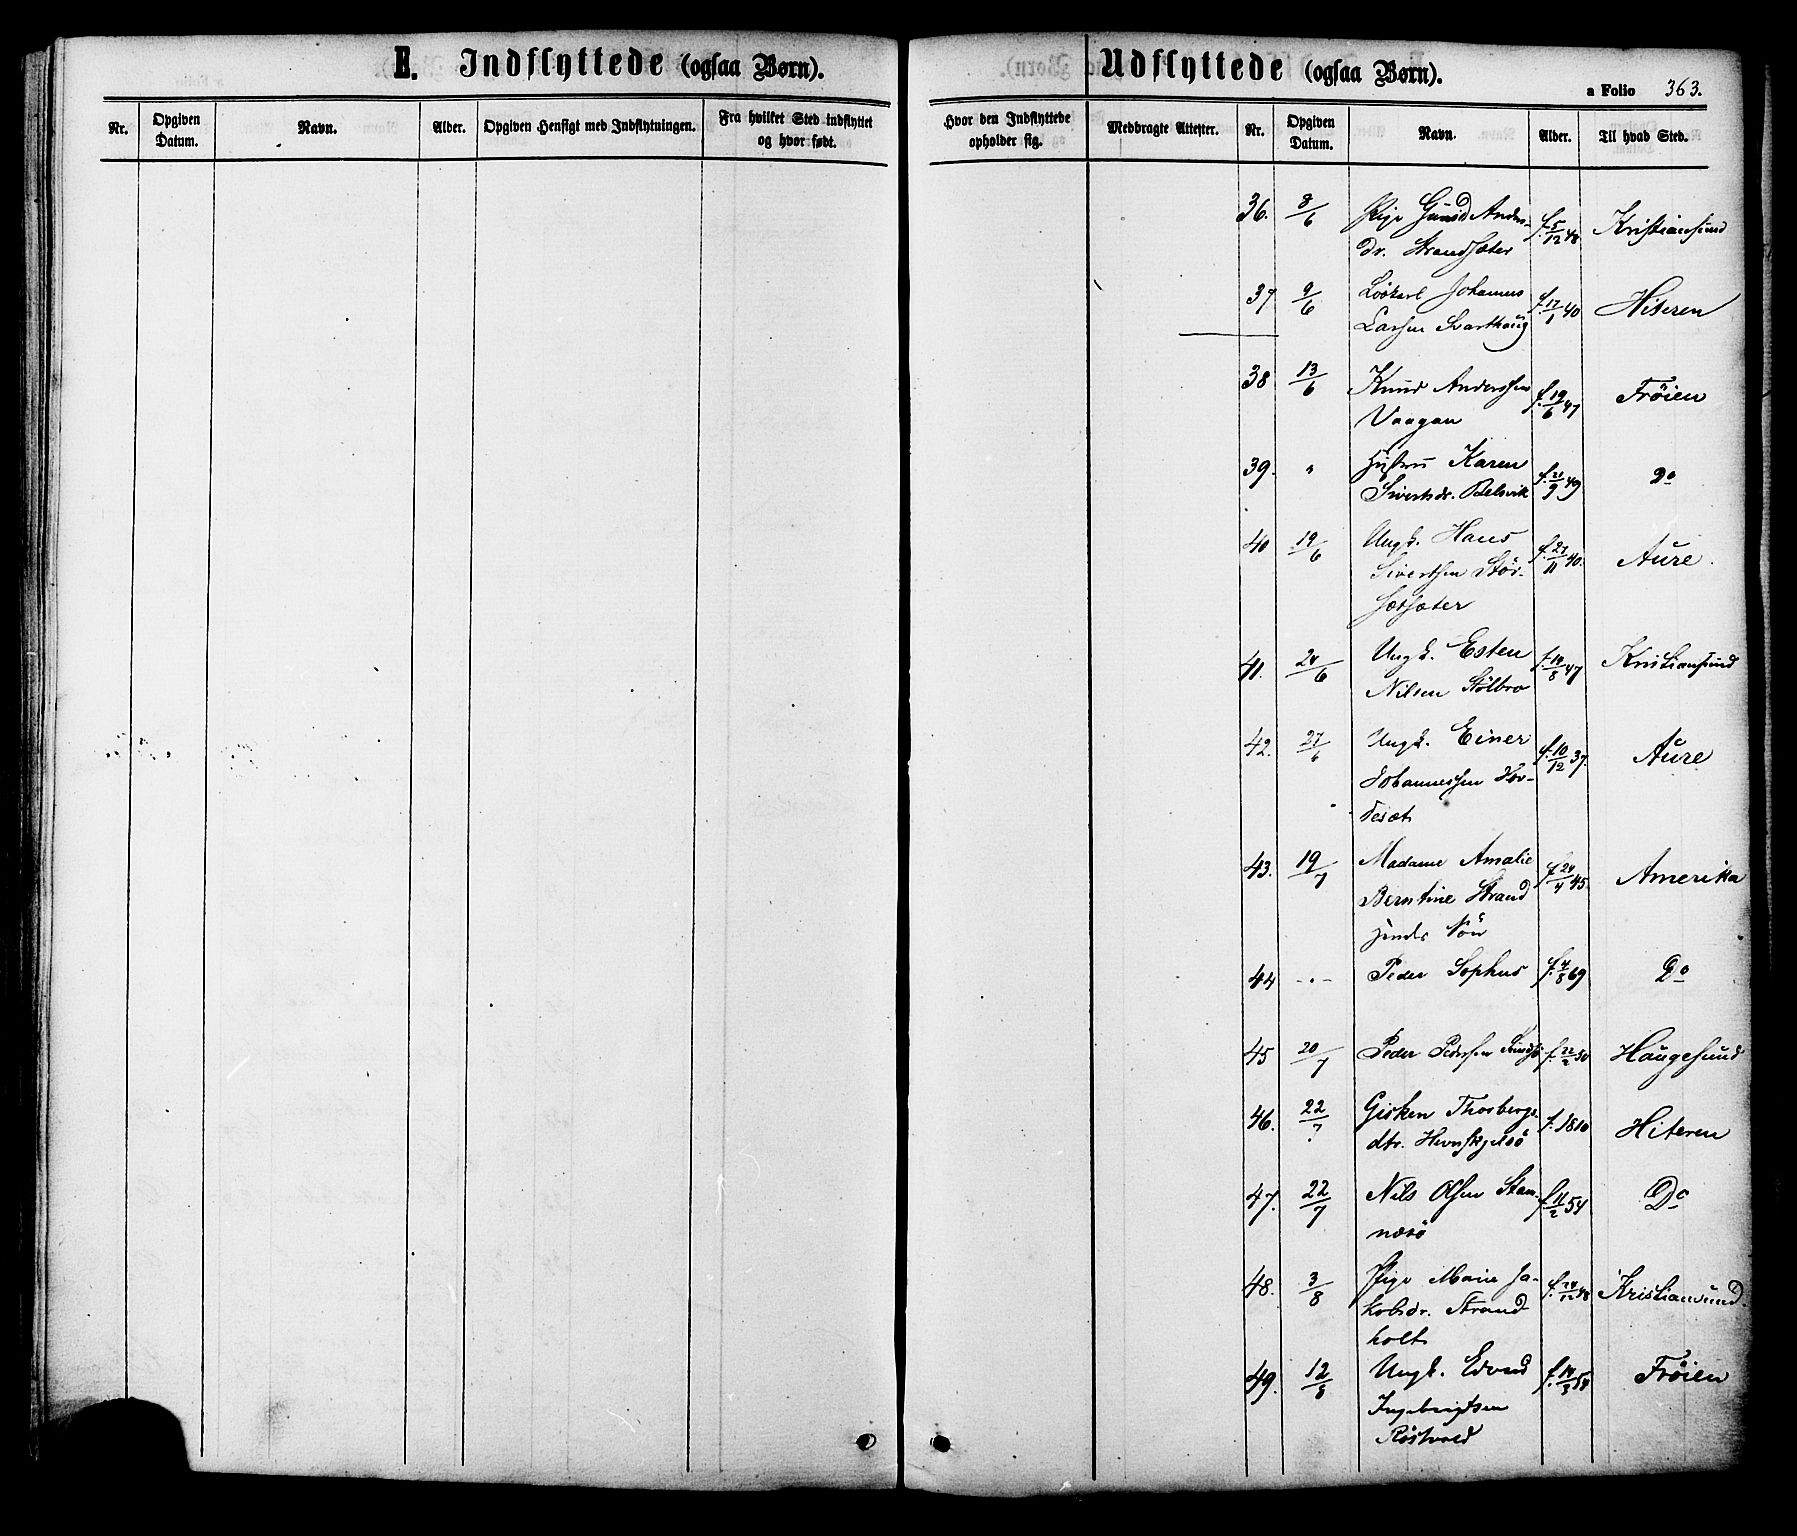 E. Indflyttede (ogsaa Børn).
Nr. Opgiven Datum. Navn. Alder. Opgiven Hensigt med Indflytningen. Fra hvilket Sted indflyttet og hvor født.
Udflyttede (ogsaa Børn).
a Folio 363.
Hvor den Indflyttede opholder sig. Medbragte Attester. Nr. Opgiven Datum. Navn. Alder. Til hvad Sted.
36. 8/6 Pige Anders- f. 5/12 48 Kristiansund
dr. Strandsæter
37 9/6 Johannes f. 17/1 40 Hiteren
Larsen Svarthaug
38 13/6 Knud Anderssen f. 19/6 47 Frøien
Vaagan
39. " Hustru Karen f. 21/9 49 Do
Sivertsdr. Belsvik
40 19/6 Ungk. Hans f. 27/11 40. Aure.
Sivertsen Stør-
sætsæter
41. 24/6 Ungk. Esten f. 14/8 47 Kristiansund
Nilsen Stølbro
42. 27/6 Ungk. Einer f. 10/12 37. Aure
Johannessen Hor-
desæt
43. 19/7 Madame Amalie f. 24/4 45. Amerika
Berntine Strand
hendes Søn
44 -"- Peder Sophus f. 4/8 69 Do
45 20/7 Peder Pedersen f. 22/2 50 Haugesund
46. 22/7 Gisken Thorbergs- f. 1810 Hiteren
dtr. Hevnskjelsø
47. 22/7 Nils Olsen Stam- f. 11/2 54 Do
næsø
48. 3/8 Pige Marie Ja- f. 24/12 48 Kristiansund.
kobsdr. Strand-
holt
49. 12/8 Ungk. Edvard f. 14/3 54 Frøien
Ingebrigtsen
Røstvold